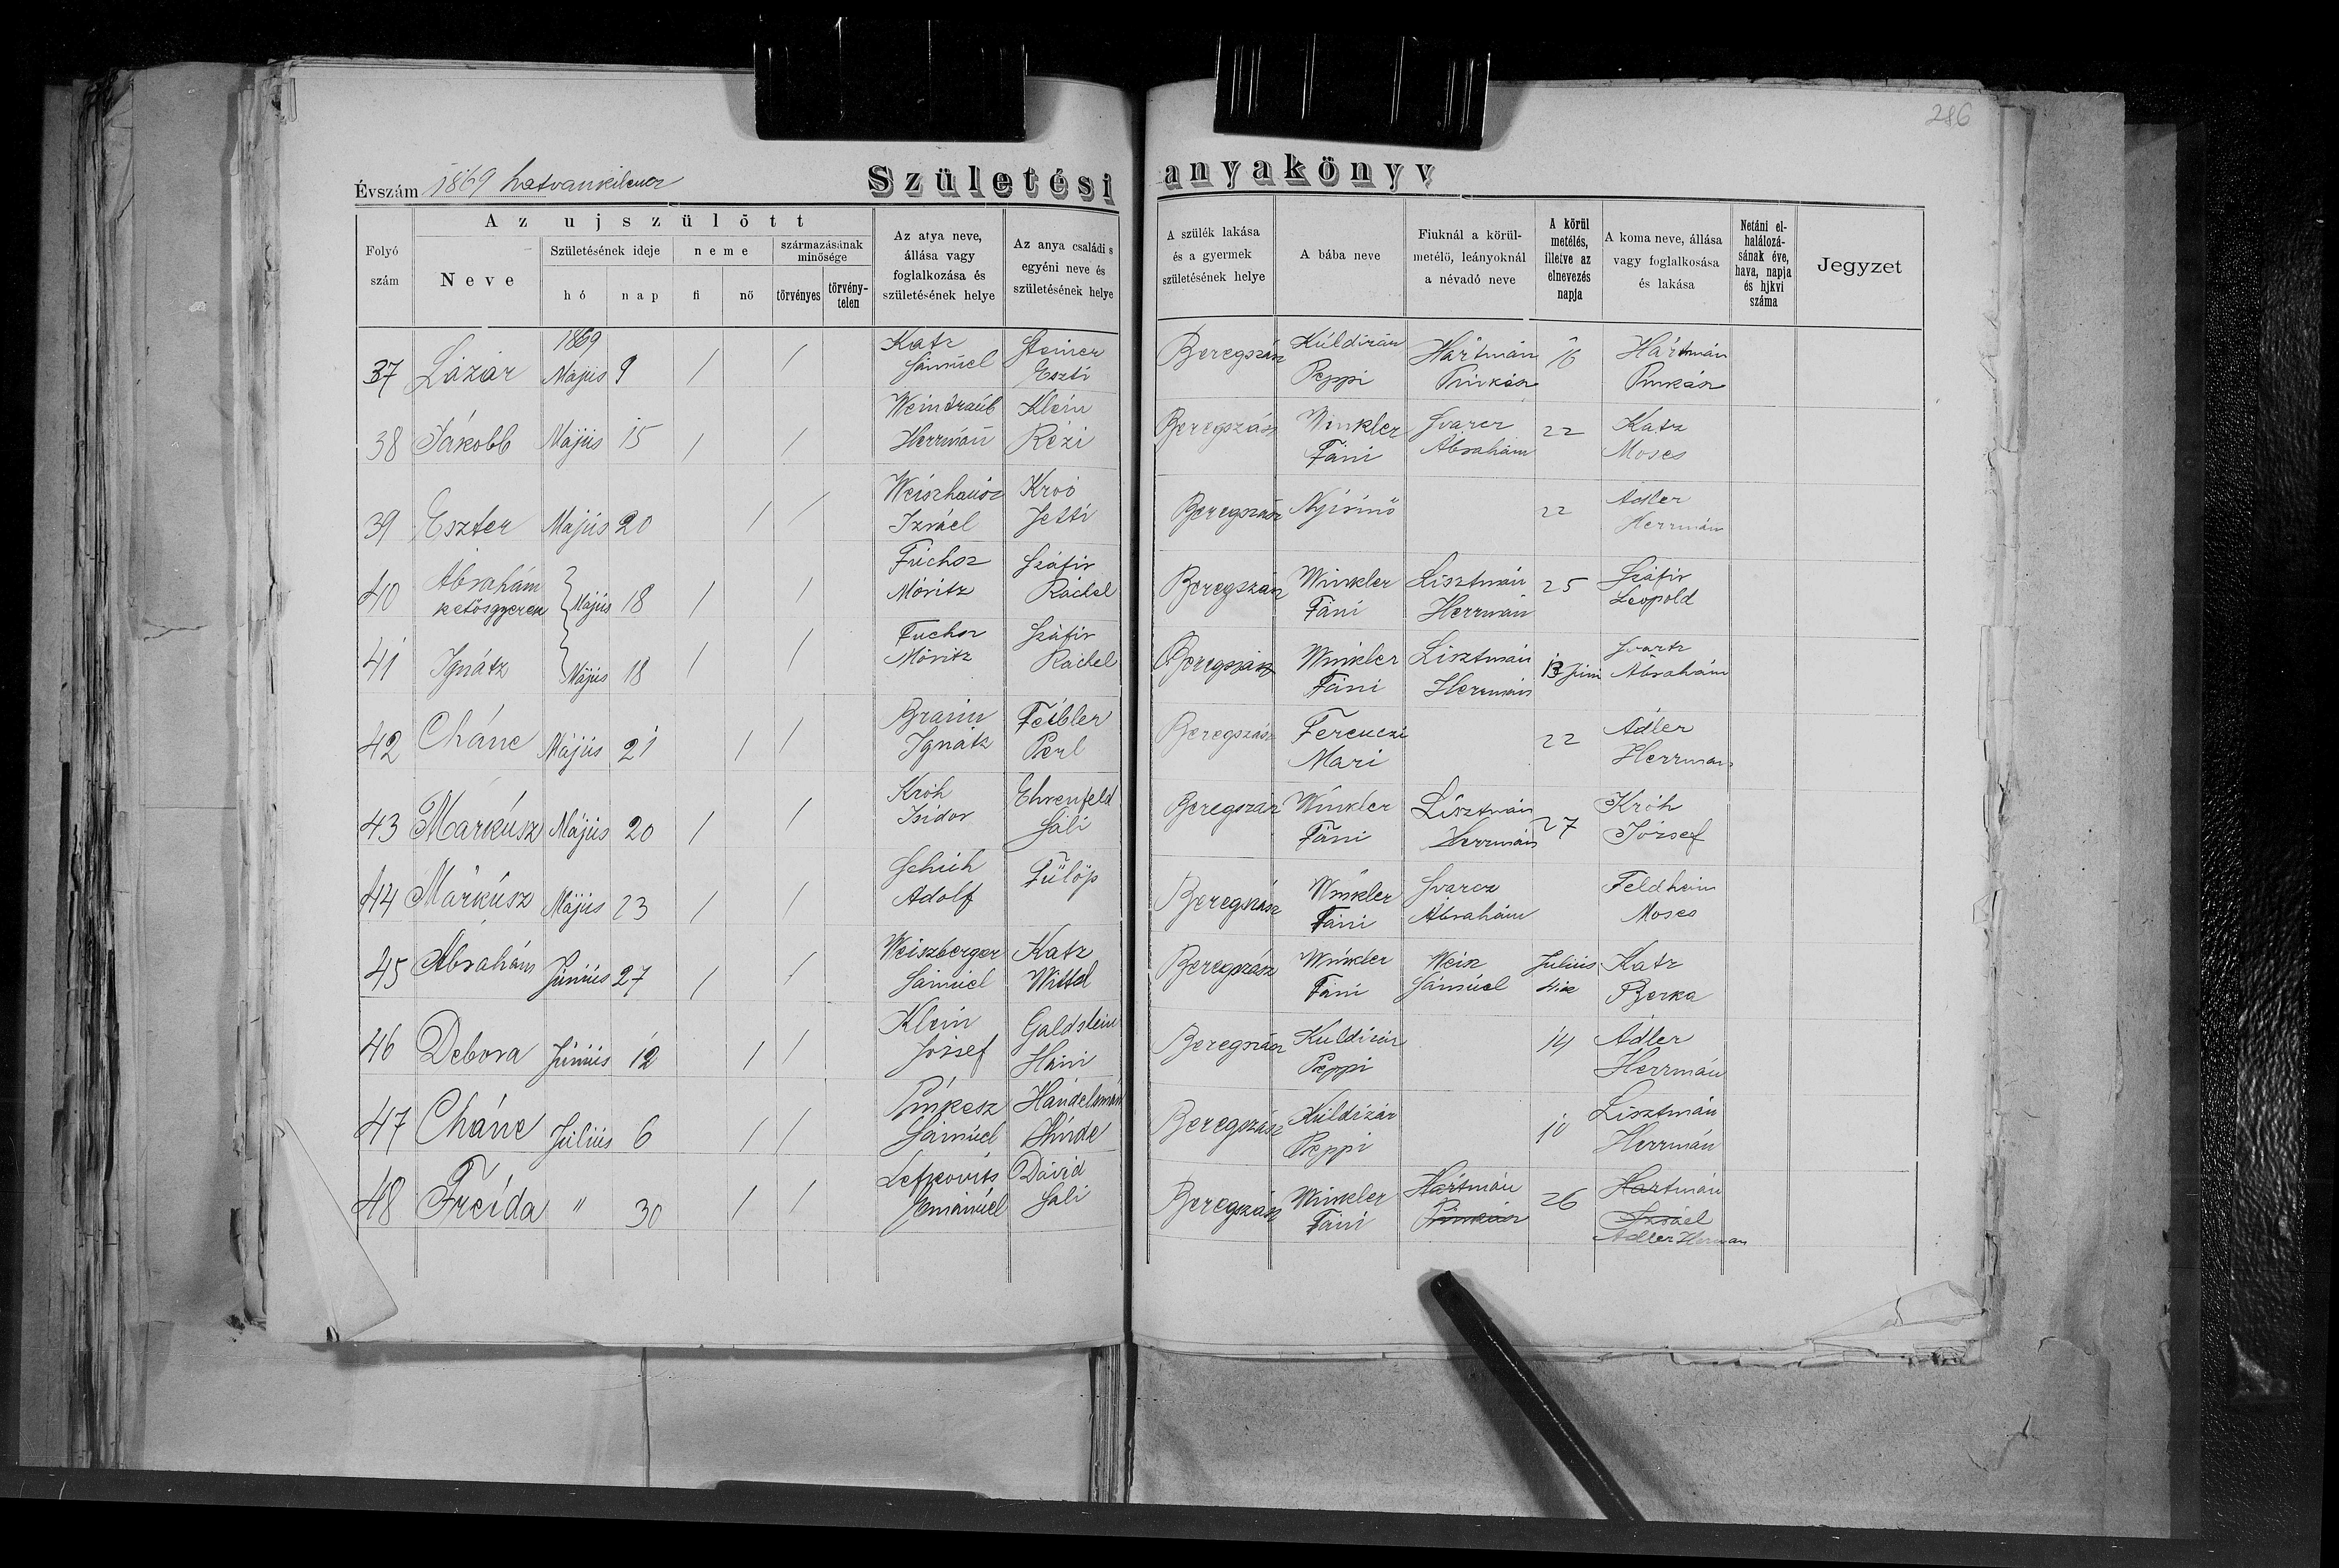 286
Évszám 1869 hatvankilencz Születési anyakönyv
Folyó szám
Az ujszülött
Neve
Születésének ideje
hó
nap
neme
fi
nő
származásának minősége
törvényes
törvény-
telen
Az atya neve,
állása vagy
foglalkozása és
születésének helye
Az anya családi s
egyéni neve és
születésének helye
A szülék lakása
és a gyermek
születésének helye
A bába neve
Fiuknál a körül-
metélő, leányoknál
a névadó neve
A körül
metélés,
illetve az
elnevezés
napja
A koma neve, állása
vagy foglalkosása
és lakása
Netáni el-
halálozá-
sának éve,
hava, napja
és hjkvi
száma
Jegyzet
1869
37 Lázár Május 9 / / Katz Sámúel Steiner Eszti Beregszász Küldizár Peppi Hártmán Pinkász 16 Hártmán Pinkász
38 Jákobb Május 15 / / Weintraub Herrmán Klein Rézi Beregszász Winkler Fáni Svarcz Ábrahám 22 Katz Moses
39 Eszter Május 20 / / Weiszhausz Izráel Kroó Jetti Beregszász Nyírinő 22 Adler Herrmán
40 Ábrahám ketősgyerek Május 18 / / Fuchsz Móritz Száfir Ráchel Beregszász Winkler Fáni Lisztmán Herrmán 25 Száfir Leopold
41 Ignátz Május 18 / / Fuchsz Móritz Száfir Ráchel Beregszász Winkler Fáni Lisztmán Herrmán 13 Juni Svartz Ábrahám
42 Cháne Május 21 / / Braun Ignátz Feibler Perl Beregszász Ferenczi Mari 22 Adler Herrman
43 Márkúsz Május 20 / / Króh Isidor Ehrenfeld Sáli Beregszász Winkler Fáni Lisztmán Herrmán 27 Króh József
44 Márkúsz Május 23 / / Schuh Adolf Fülöp Beregszász Winkler Fáni Svarcz Ábrahám Feldheim Moses
45 Ábrahám Június 27 / / Weiszberger Sámúel Katz Wittel Beregszász Winkler Fáni Weisz Sámúel Július 4ike Katz Berka
46 Debora Június 12 / / Klein József Galdstein Háni Beregszász Kuldizár Peppi 14 Adler Herrmán
47 Cháne Július 6 / / Pinkesz Sámúel Hándelsmán Hinde Beregszász Küldizár Peppi 10 Lisztmán Herrmán
48 Freida " 30 / / Lefkovits Emánúel Dávid Sali Beregszász Winkler Fáni Hártmán Pinkász 26 Hartmán Izráel Adler Herman